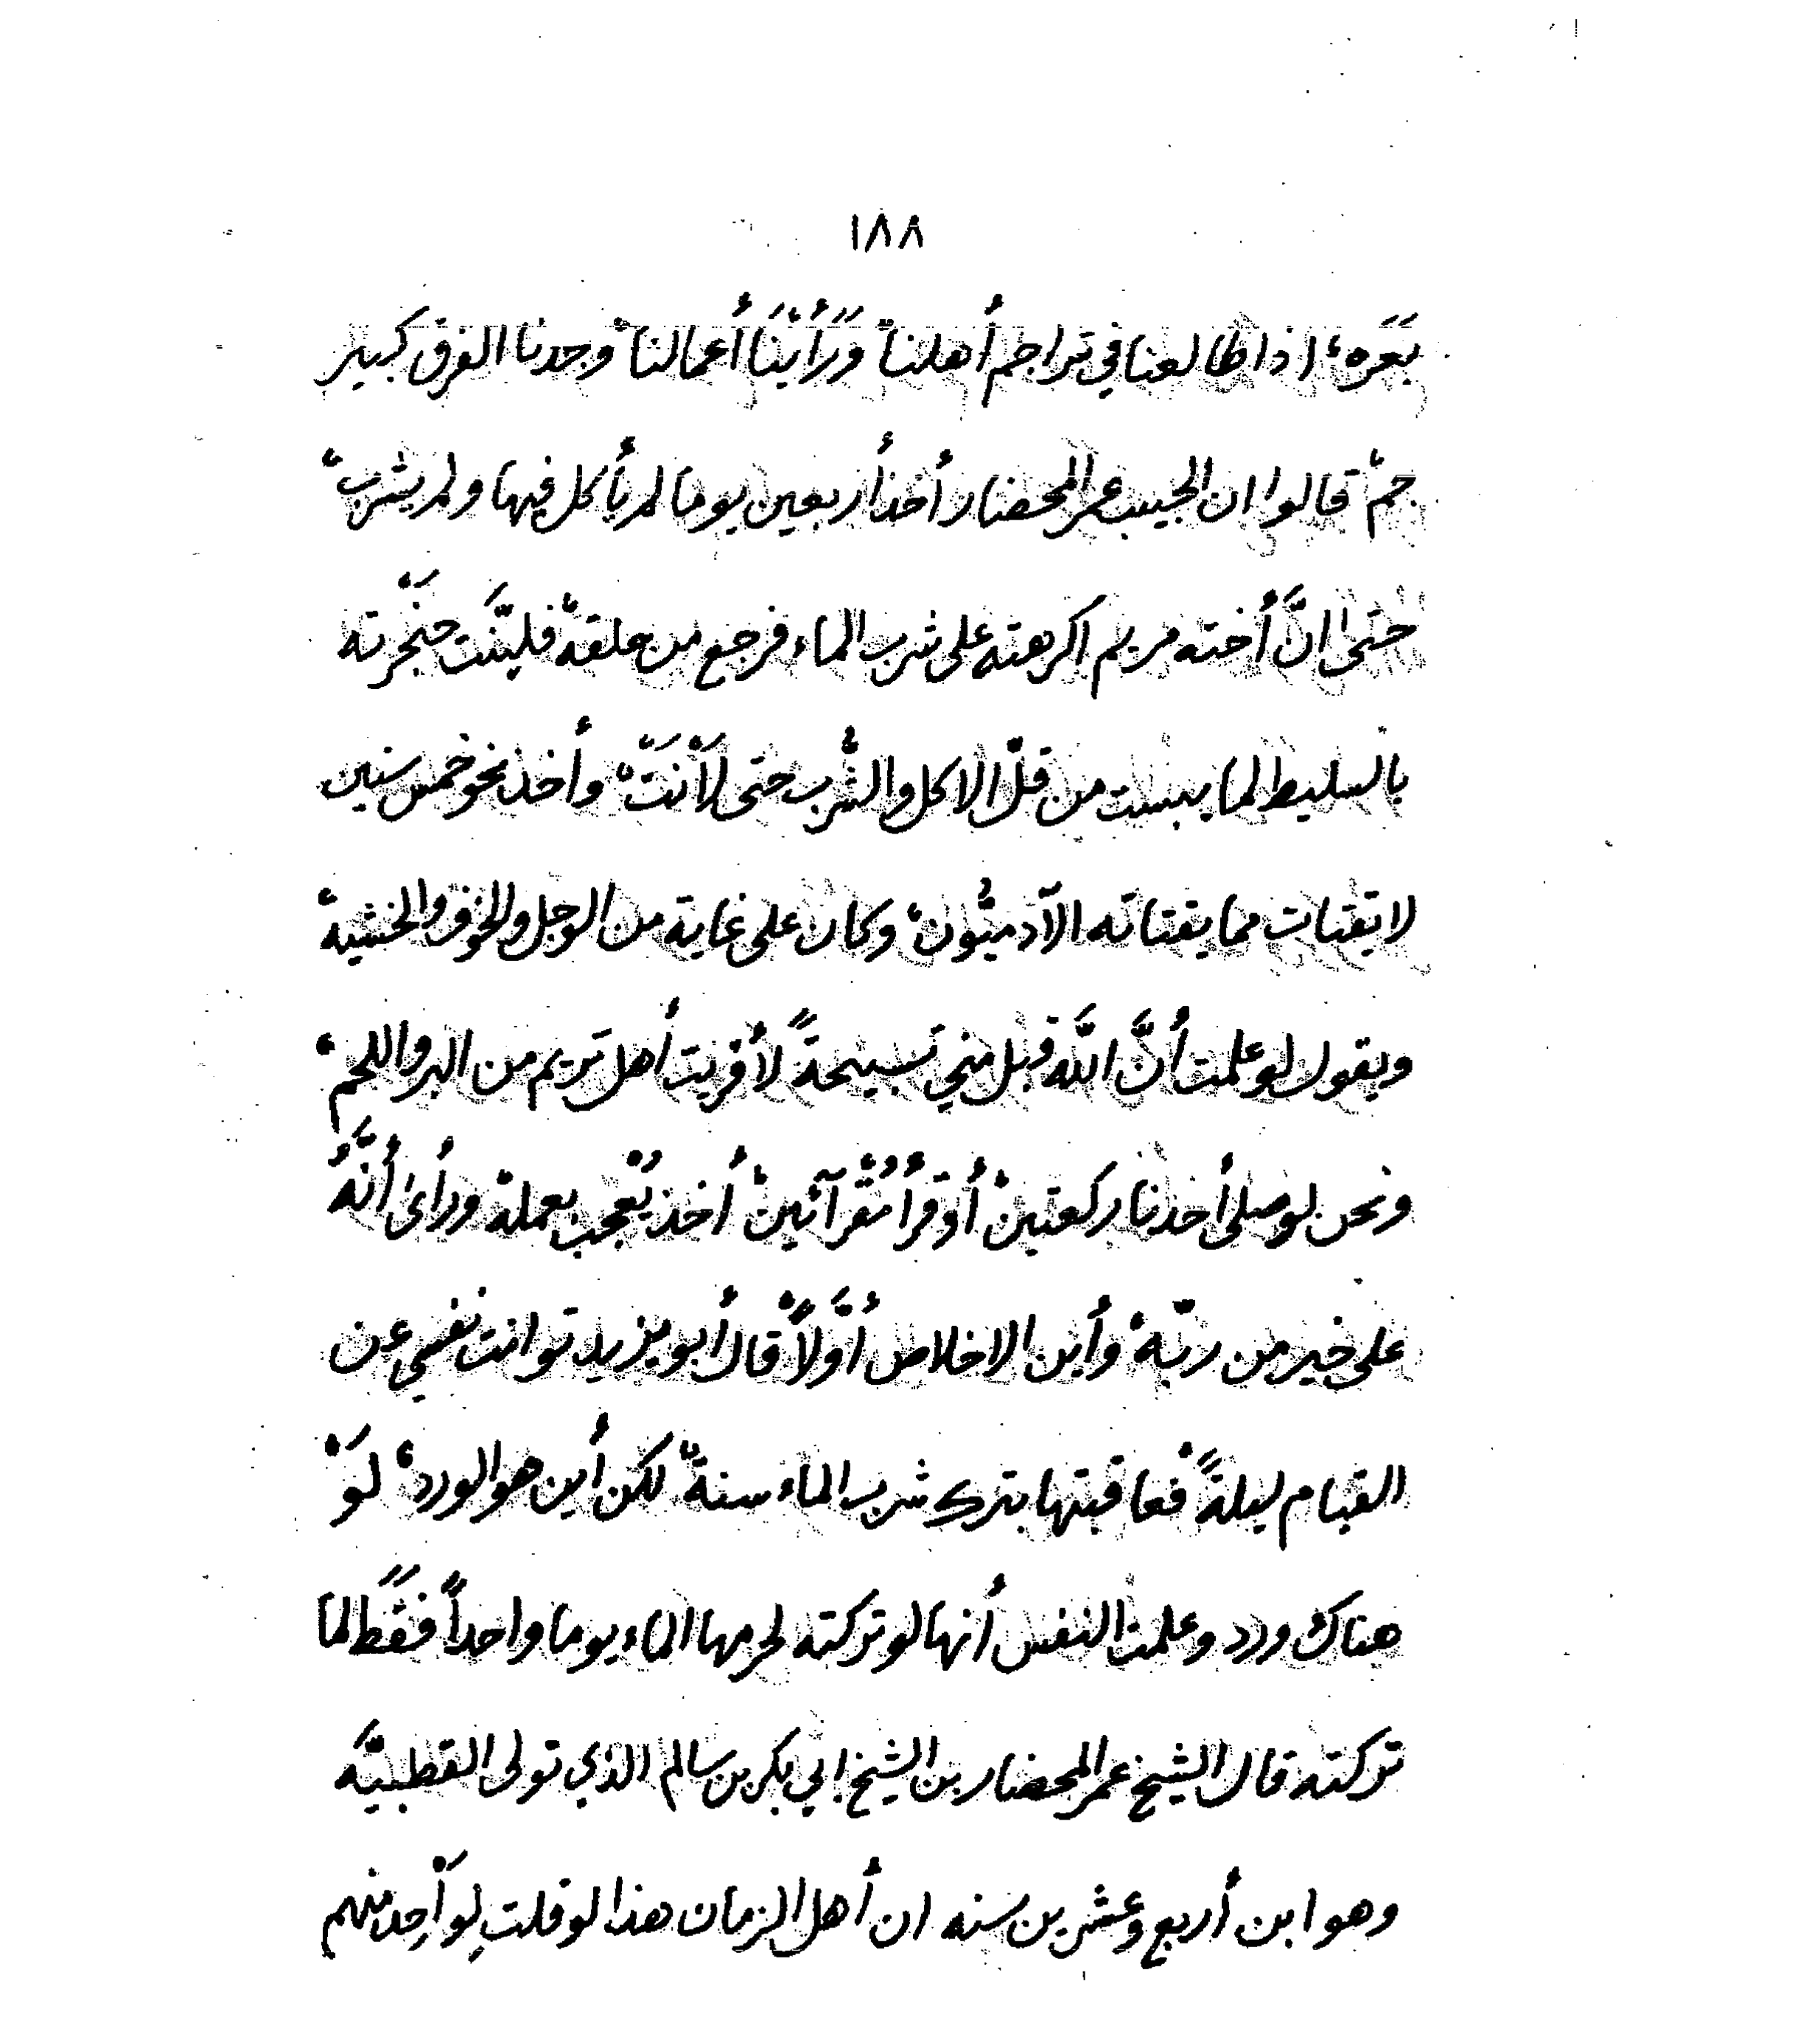 ١٨٨
بَعَره، اذا طالعنا في تراجم أهلنا ورَأَيْنَا أعمالنا، وجدنا الفرق كبير
جمْ، قالوا ان الحبيب عمر المحضار أخذ أربعين يوما لم يأكل فيها ولم يشرب،
حتى انَّ أخته مريم اكرهته على شرب الماء فرجع من حلقه، فليَّنَت حنْجَرته
بالسليط لما يبست من قلّ الاكل والشُّرب حتى لَانَتْ، وأخذ نحو خمس سنين
لا يقتات مما يقتاته الآدميُّون، وكان على غاية من الوجل والخوف والخشية،
ويقول لو علمت أنَّ اللَّه قبل مني تسبيحةً لأقريت أهل تريم من البر واللحم،
ونحن لو صلى أحدنا ركعتين، أو قرأ مُقْرآئين، أخذ يُعْجب بعمله، ورأى أنَّهُ
على خير من ربّه، وأين الاخلاص أوَّلاً، قال أبو يزيد توانت نفسي عن
القيام ليلةً، فعاقبتها بترك شرب الماء سنة، لكن أين هو الورد، لَوْ
هناك ورد وعلمت النفس أنها لو تركته لحرمها الماء يوما واحداً فقَط لما
تركته، قال الشيخ عمر المحضار بن الشيخ ابي بكر بن سالم الذي تولى القطبيَّه
وهو ابن أربع وعشرين سنه ان أهل الزمان هذا لو قلتِ لِوَاْحِد منهم